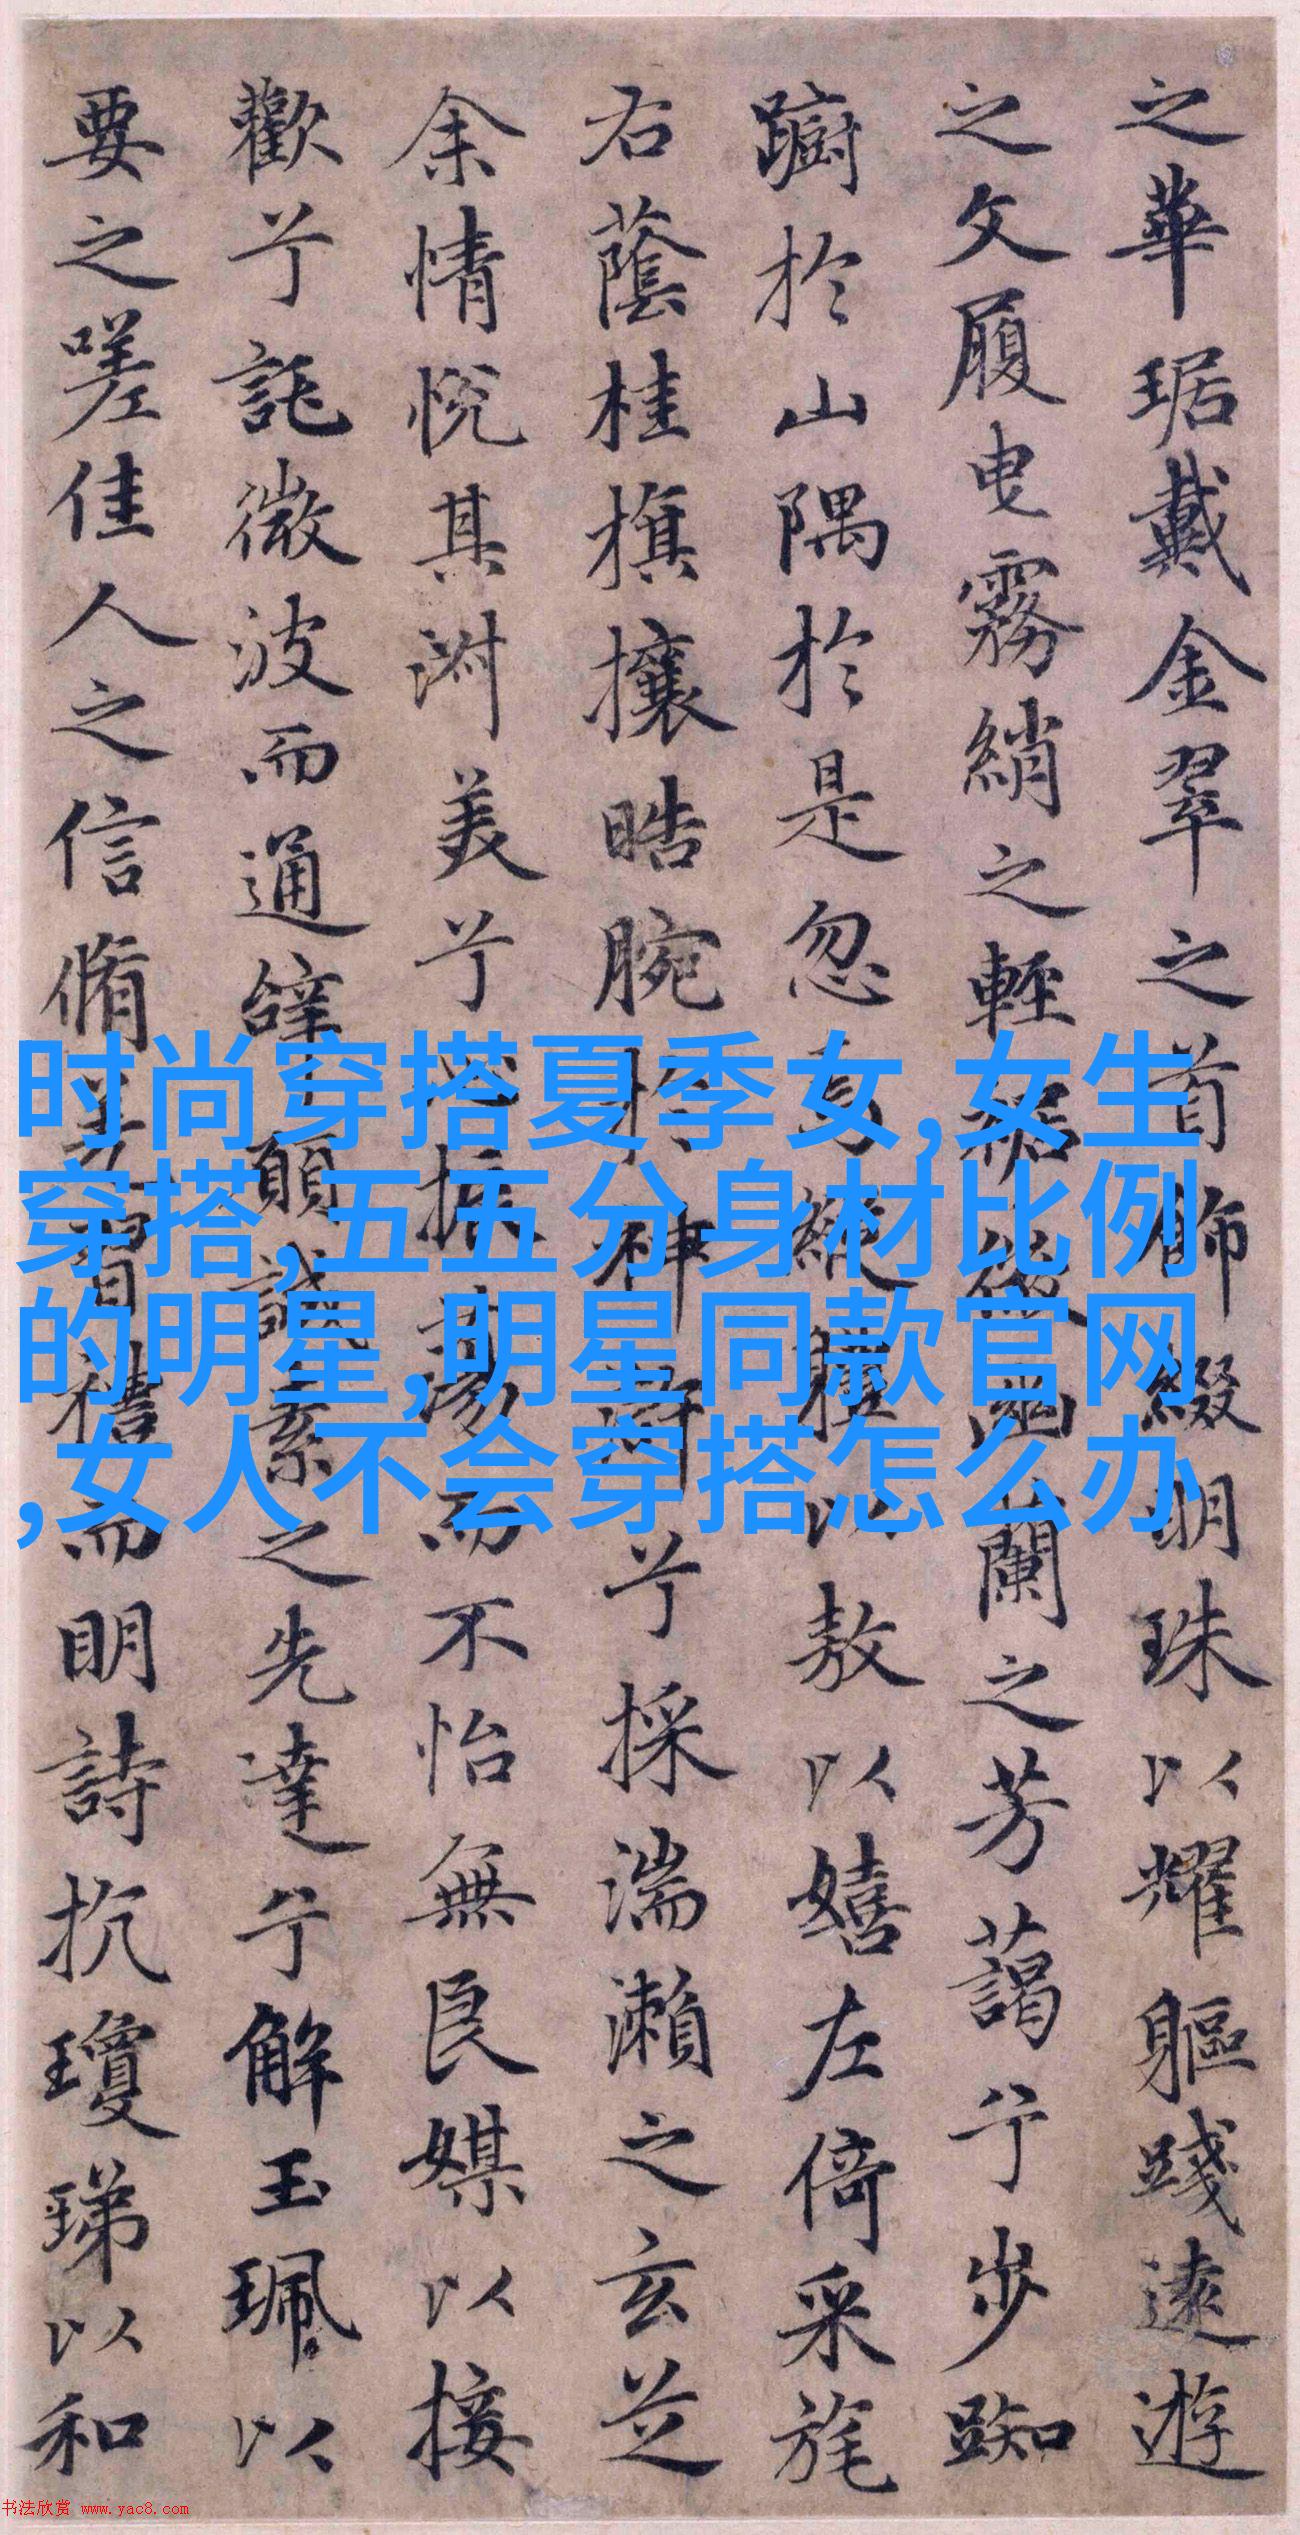 之華琚戴金翠之首飾綴明珠以耀軀踐遠遊
之文履曳霧綃之輕裾微幽蘭之芳藹兮步踟
躕於山隅於是忽焉縱體以敖以嬉左倚采旄
右蔭桂旗攘晧腕於神滸兮採湍瀨之玄芝
余情悅其淑美兮心振蕩而不怡無良媒以接
歡兮託微波而通辭願誠素之先達兮解玉珮以
要之嗟佳人之信脩羌習禮而明詩抗瓊珶以和
时尚穿搭夏季女,女生
穿搭,五五分身材比例
的明星,明星同款官网
,女人不会穿搭怎么办
书法欣赏 www.yac8.com